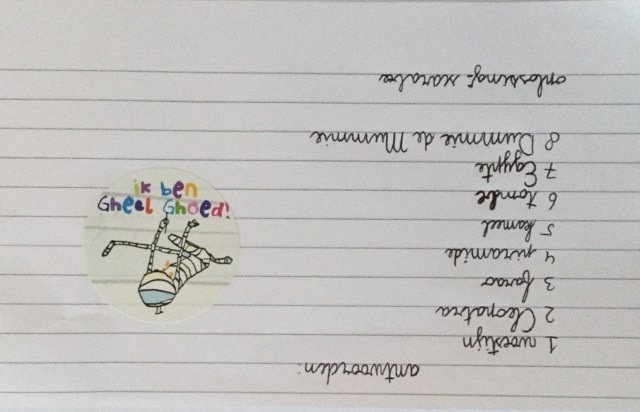 antwoorden:
1 woestijn
2 Cleopatra
3 farao
4 piramide
5 kameel
6 tombe
7 Egypte
8 Dummie de Mummie
oplossing: scarabee
ik ben
Gheel Ghoed!